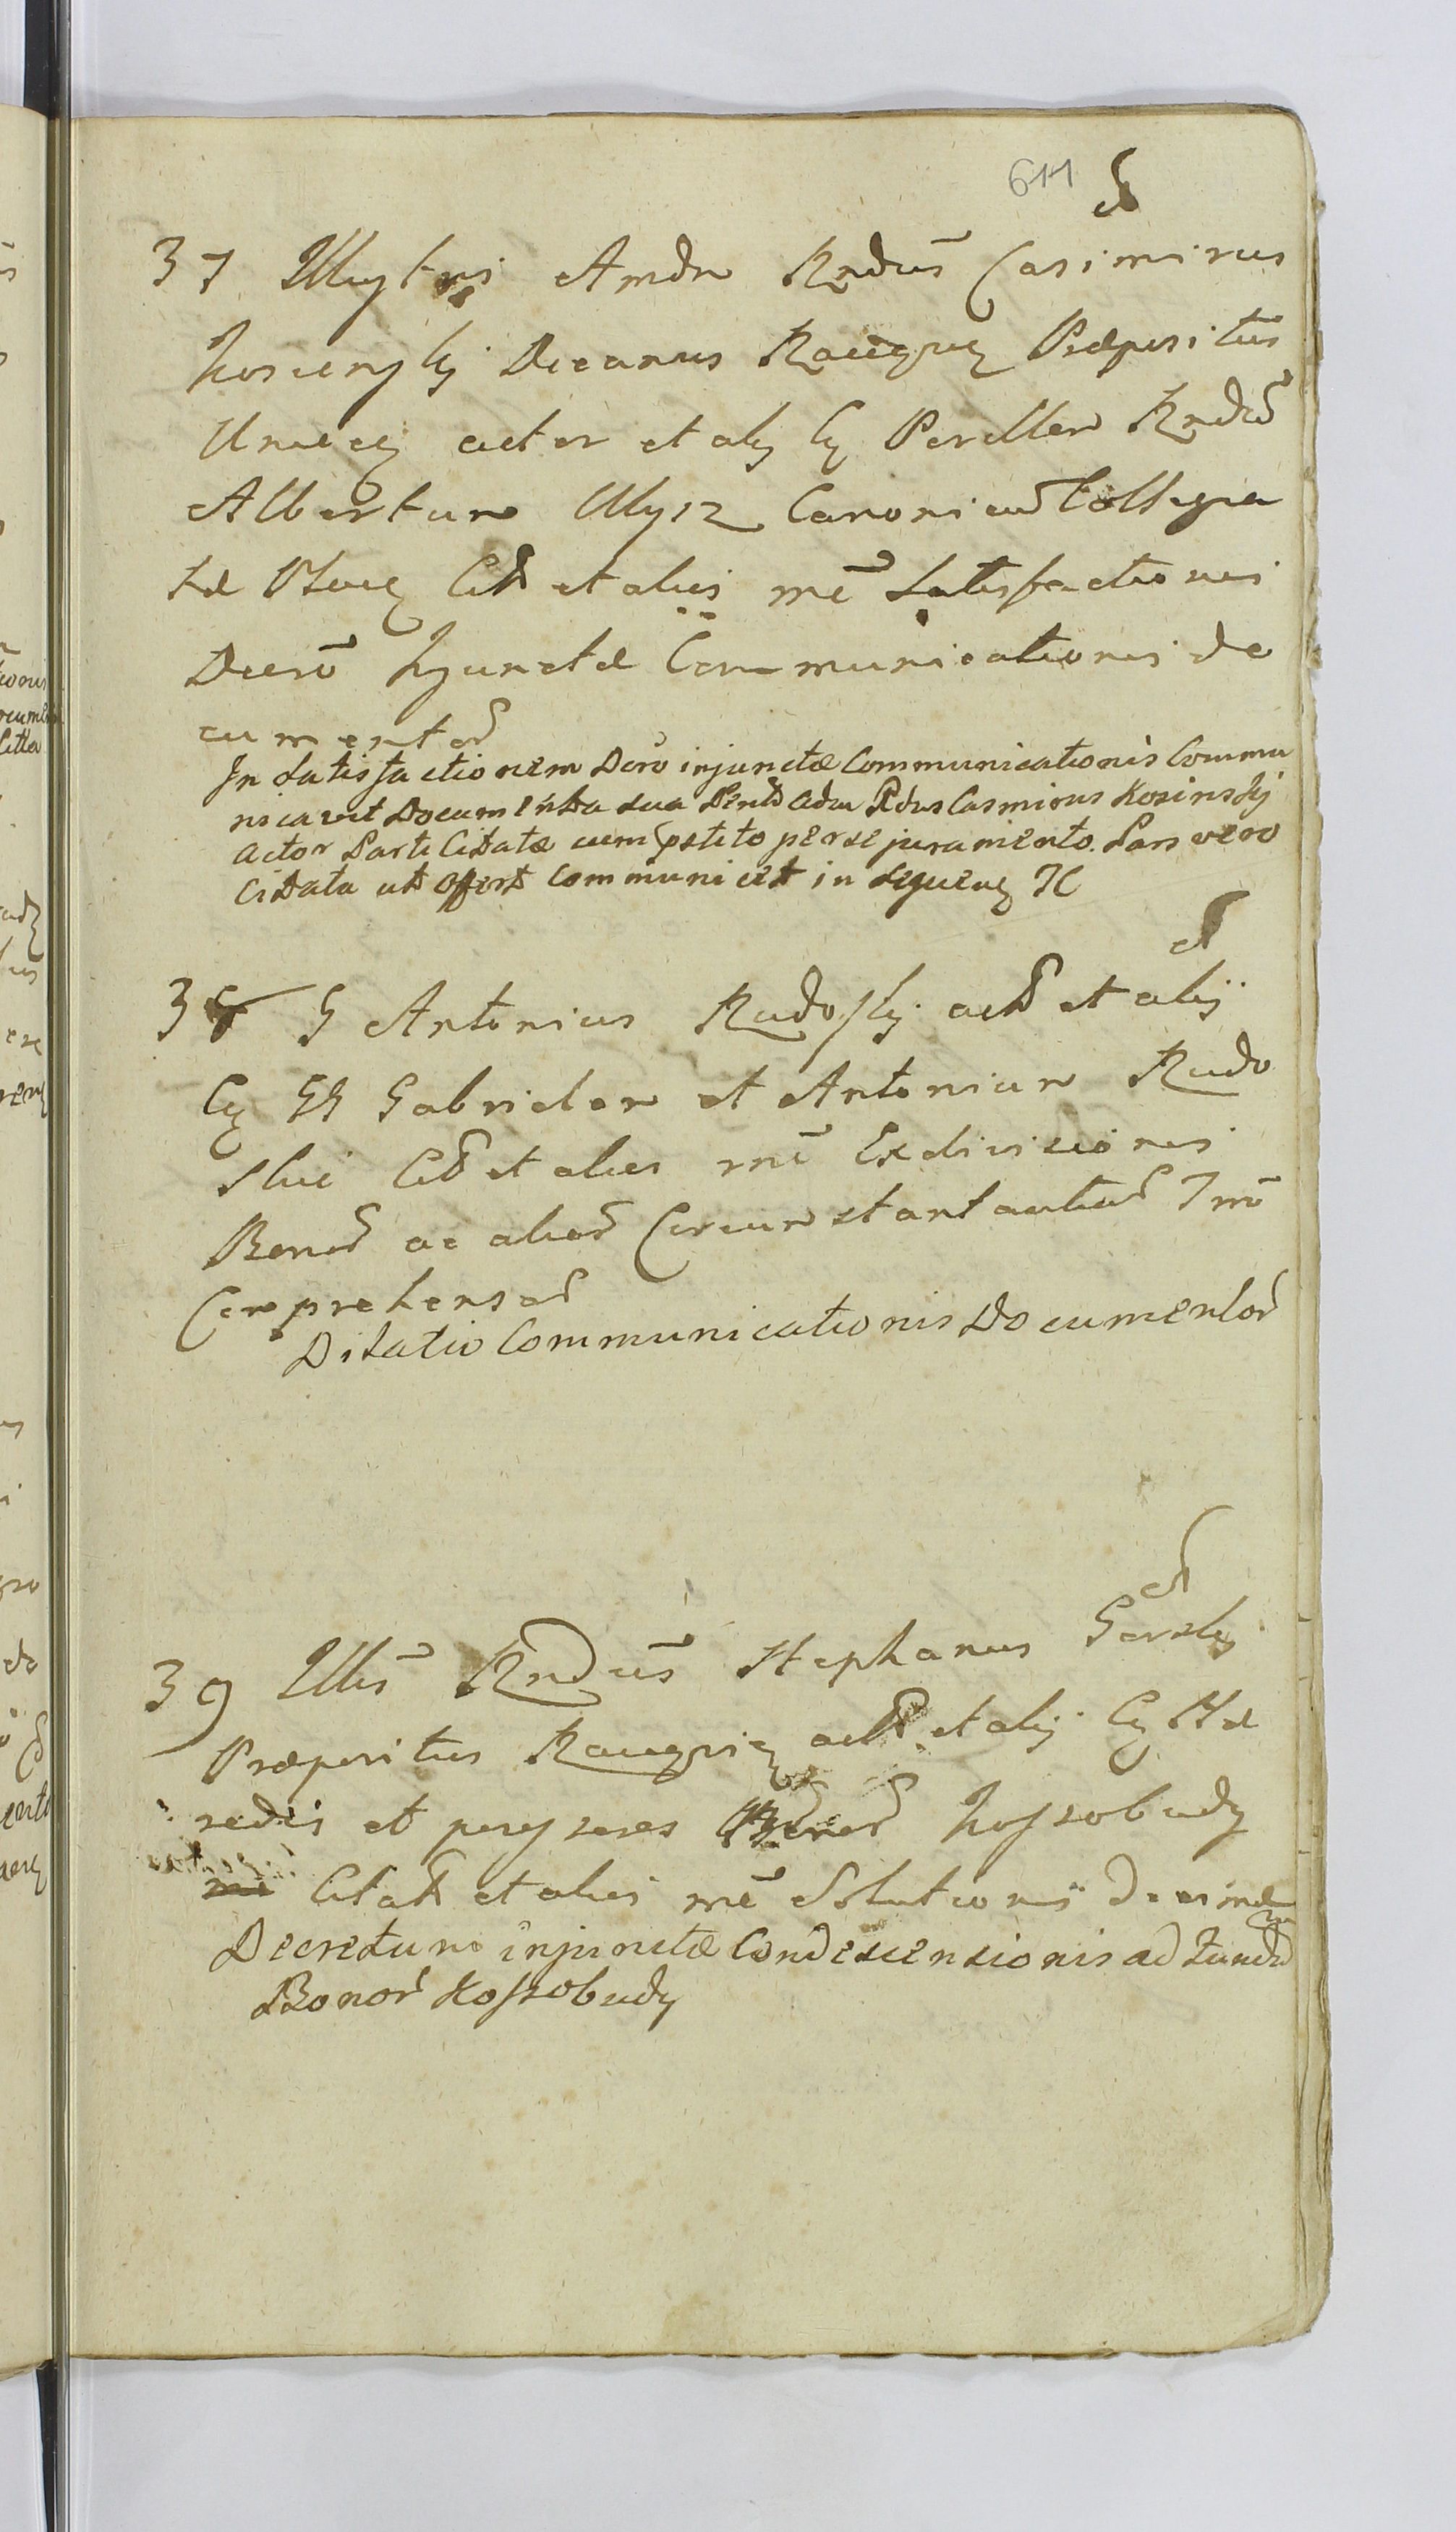 611
37 Illustris Amdn Rndus Casimirus
Kosienskj Decanus Raciązen Præpositus
Uniecz actor et alij Cq Perillem Rndu
Albertum Ulysz Canonicu Collegia
tæ Ploce Citt et alios me Satisfactionis
Decro Injunctæ Communicationis do
cumentor
In Satisfactionem Dcro injunctæ Communicationis Commu
nicavit Documenta sua Rndus Casmirus Kosinskj
Actor Parti Citatæ cum petito per se juramento. Pars vero
Citata ut offert communicet in sequen TC
38 G Antonius Rudoskj act et alij
Cq GG Gabrielem et Antonium Rudo
skie Citt et alios me Exdivisionis
Bonor ac alior Circumstantiarum Tmo
Comprehensar
Dilatio Communicationis Documentor
39 Illris Rndus Stephanus Gorskj
Præpositus Raciązien act et alij Cq Hæ
redes et possesores Bonor Kossobudy
Citat et alios me Solutionis Decimæ
Decretum injunctæ Condescensionis ad fundu
Bonor Kossobudy